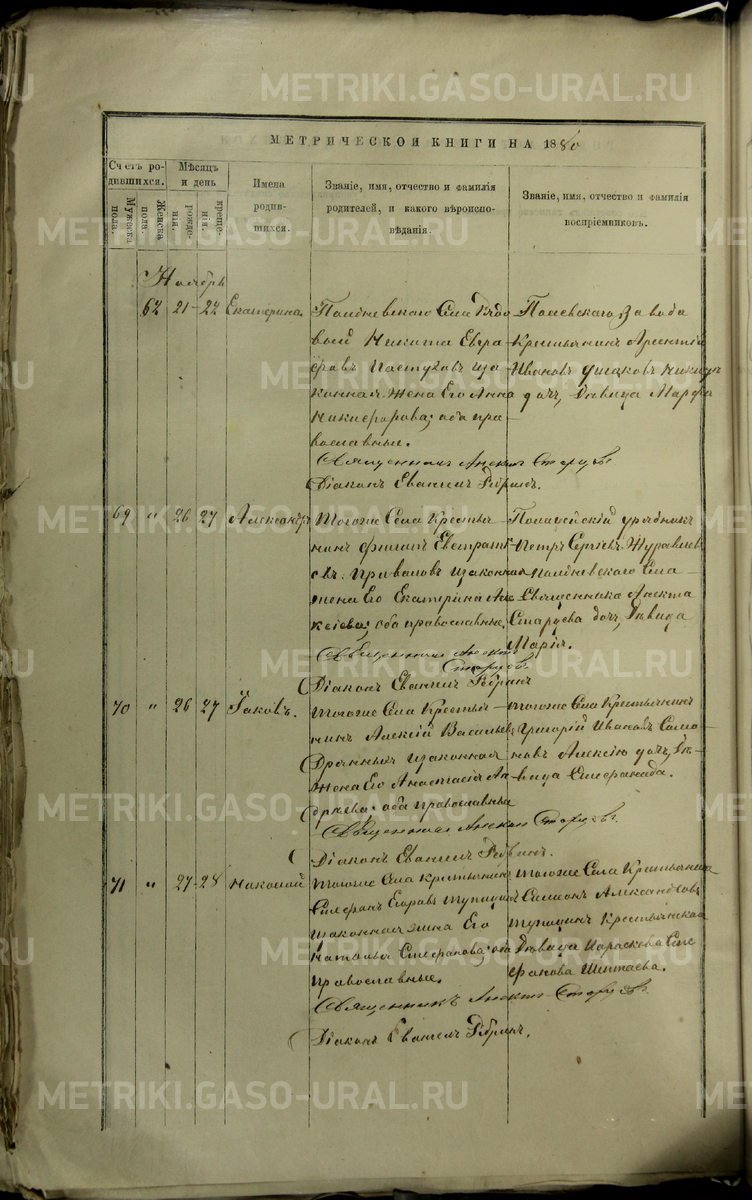 METRIKI.GASO-URAL.RU
МЕТРИЧЕСКОЙ КНИГИ НА 1880
Счетъ родившихся.
Мужеска пола.
Женска пола.
Мѣсяцъ и день
рожденія.
крещенія.
Имена родившихся.
Званіе, имя, отчество и фамилія родителей, и какого вѣроисповѣданія.
Званіе, имя, отчество и фамилія воспріемниковъ.
Ноябрь
62 21 22 Екатерина.
Полдневскаго Села Рядо
вый Никита Евгра
фовъ Пастуховъ иза
конная Жена Его Анна
Никифорова; оба пра
вославные.
Священникъ Анект Старцевъ
Діаконъ Евангелъ Ребринъ.
Полевскаго Завода
Крестьянинъ Арсентій
Ивановъ Ушаковъ
дочь, Дѣвица Марфа
69 " 26 27 Александръ
Тогоже Села Кресть
янинъ Филипъ Евстрат
овъ Приваловъ изаконная
жена Его Екатерина Але
ксіева; оба православные.
Священникъ Анект
Старцевъ.
Діаконъ Евангелъ Ребринъ
Полицейскій урядникъ
Петръ Сергіевъ Журавлевъ
Полдневскаго Села
Священника Анекта
Старцева дочь, Дѣвица
Марія.
70 " 26 27 Іаковъ.
Тогоже Села Кресть
нинъ Алексій Васильевъ
изаконная
Жена Его Анастасія Ан
дреева; оба православные
Священникъ Анект Старцевъ.
Діаконъ Евангелъ Ребринъ.
Тогоже Села Крестьянинъ
Григорій Ивановъ
Алексію дочь, Дѣ
вица Стефанида.
71 " 27 28 Николай
Тогоже Села Крестьянинъ
Стефанъ Егоровъ Тупицинъ
изаконная жена Его
Наталья Стефанова; оба
православные.
Священникъ Анект Старцевъ.
Діаконъ Евангелъ Ребринъ.
Тогоже Села Крестьянинъ
Симеонъ Александровъ
Тупицинъ Крестьянская
Дѣвица Параскева Сте
фанова Шитаева.